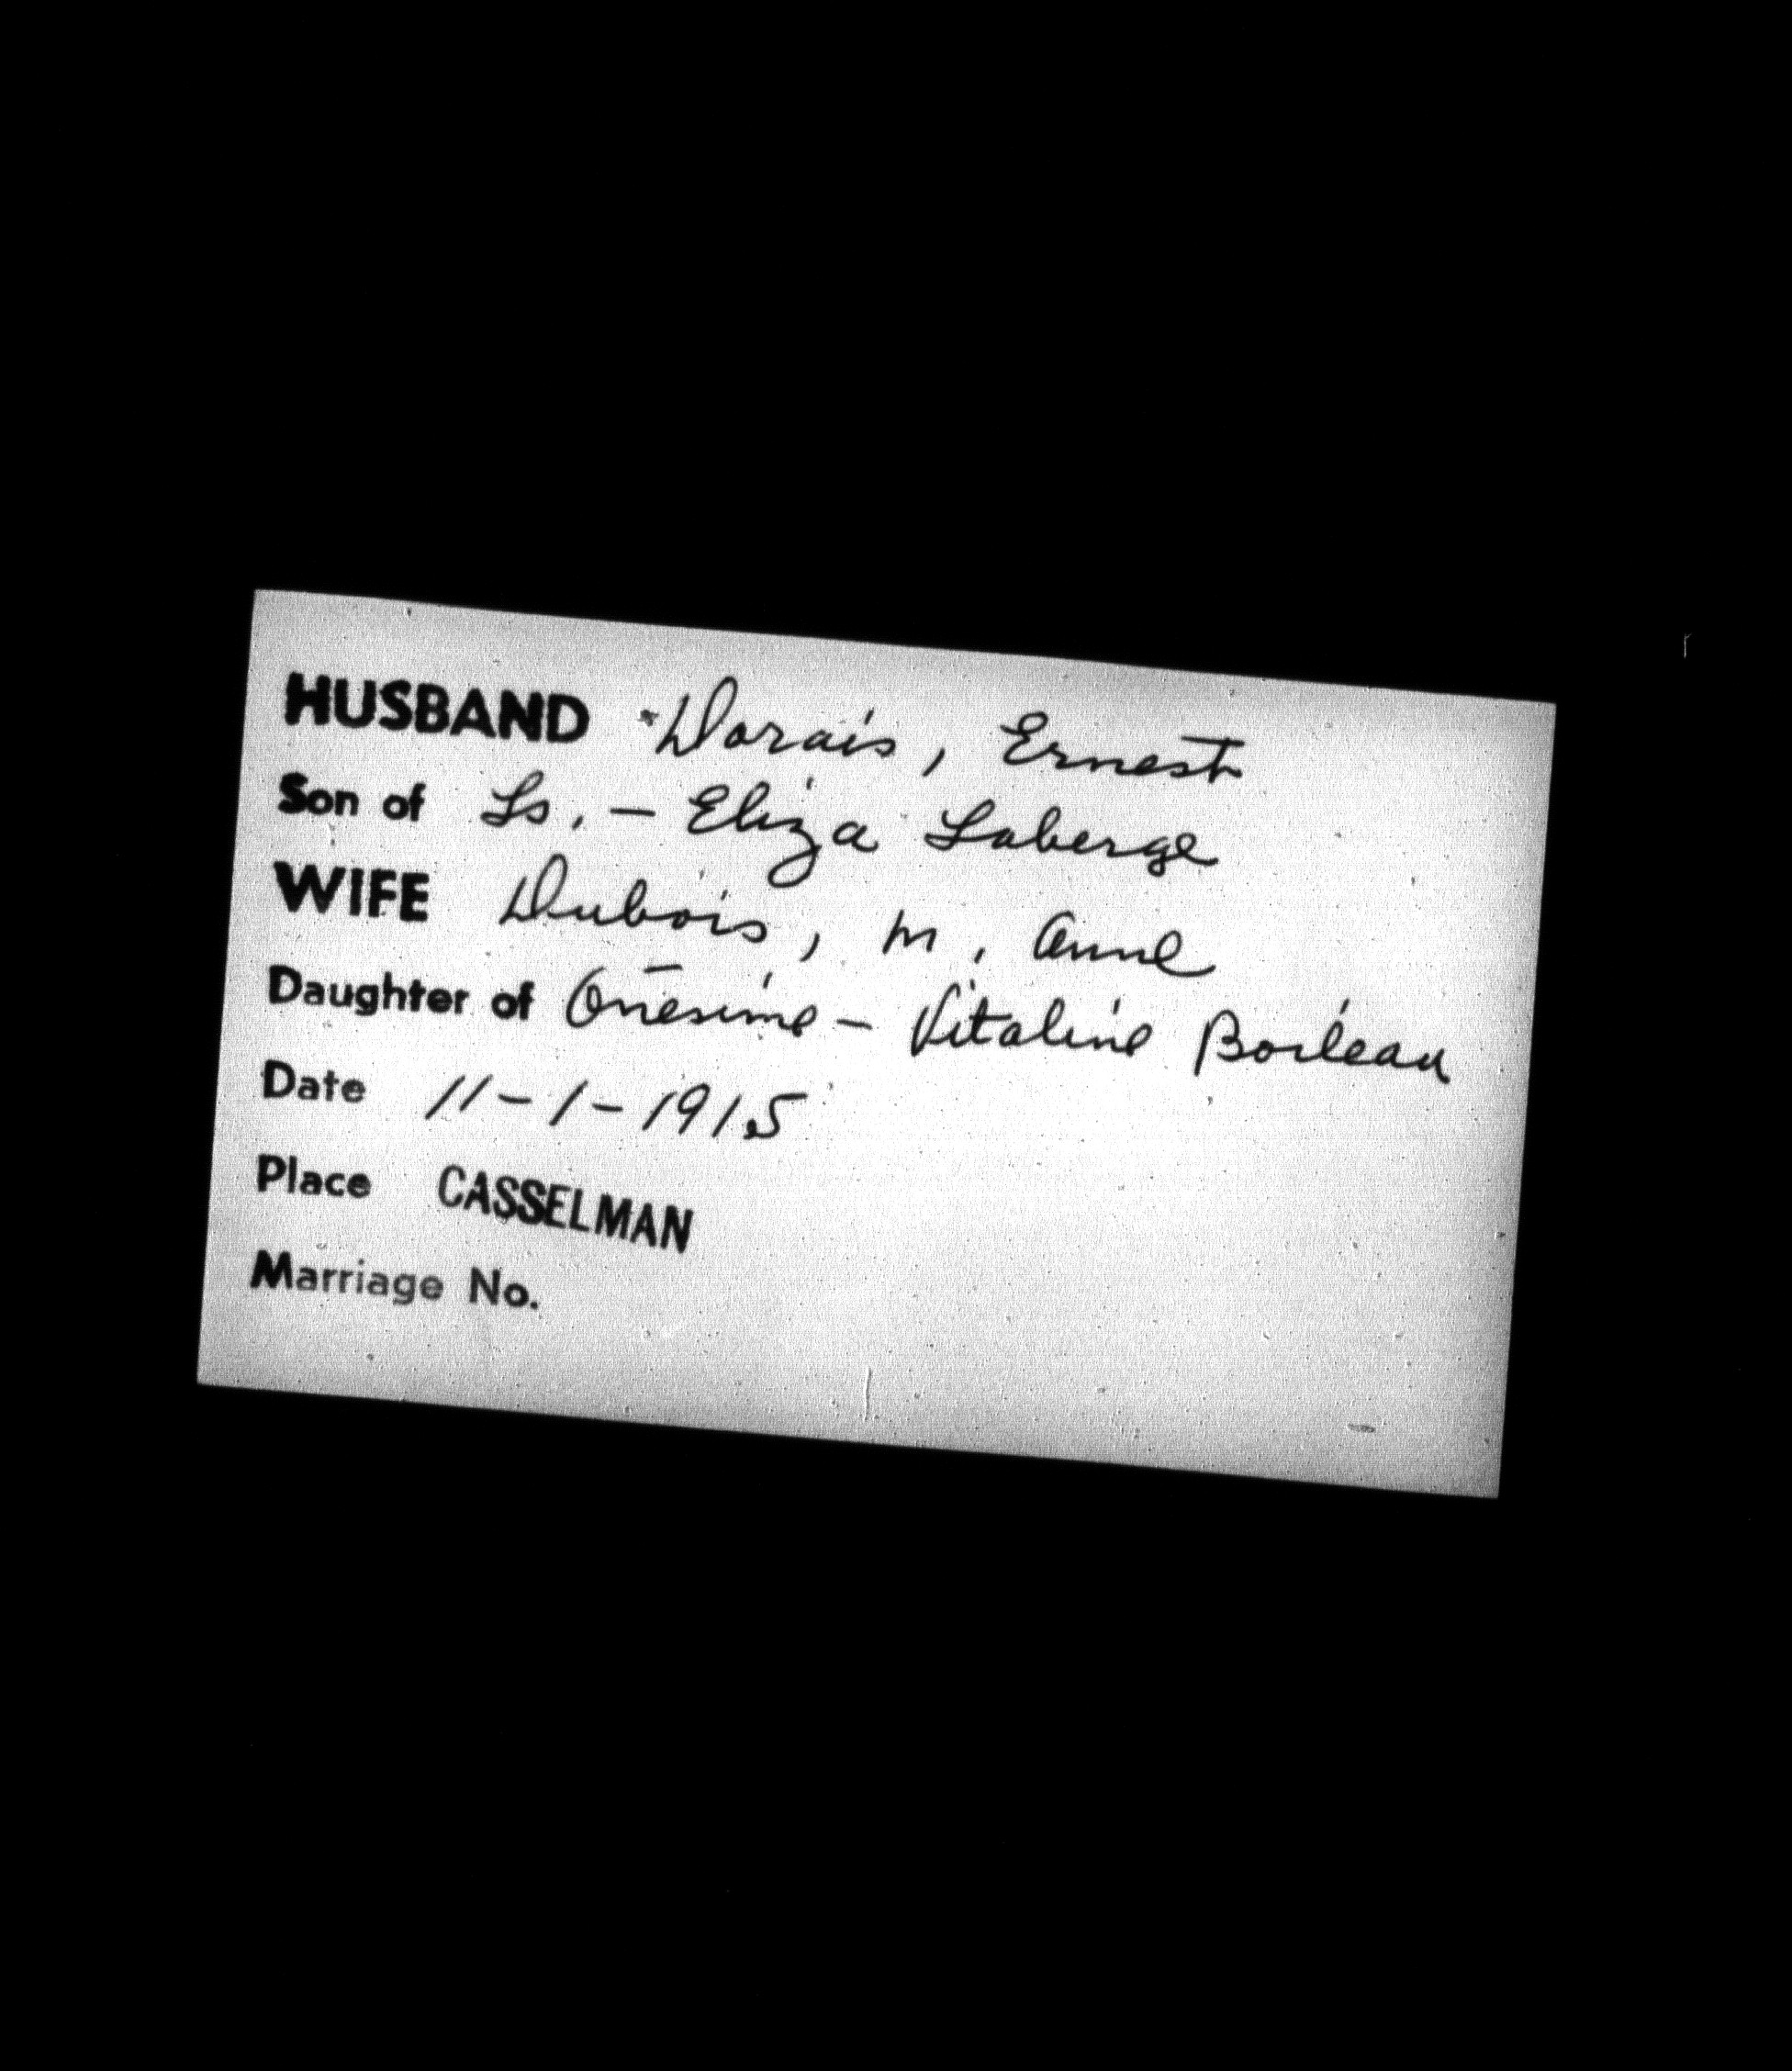 HUSBAND Dorais, Ernest
Son of Ls. - Eliza Laberge
WIFE Dubois, M. Anne
Daughter of Onésime - Vitaline Boileau
Date 11-1-1915
Place CASSELMAN
Marriage No.